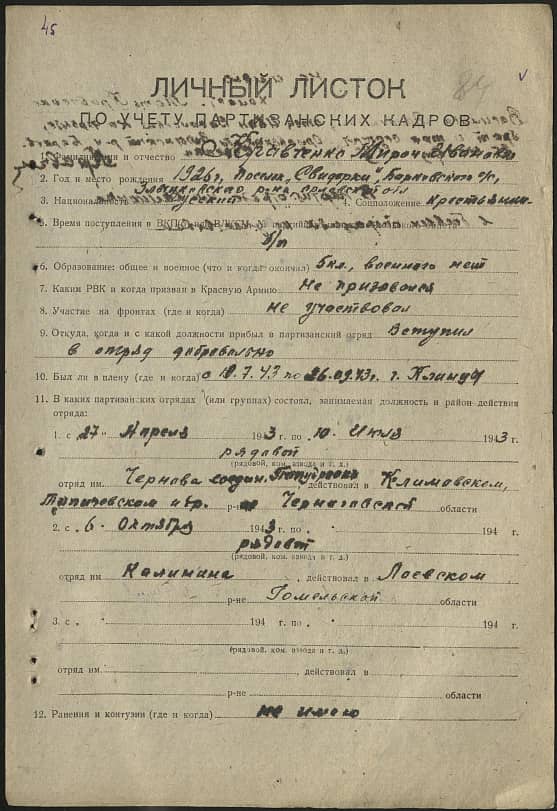 45
84
ЛИЧНЫЙ ЛИСТОК
ПО УЧЕТУ ПАРТИЗАНСКИХ КАДРОВ
и отчество Иванович
2. Год и место рождения 1926 г. посел. "Свидерки"
3. Национальность русский 4. Соцположение
5. Время поступления в
б/п
6. Образование: общее и военное (что и когда окончил) 5 кл., военного нет
7. Каким РВК и когда призван в Красную Армию Не призывался
8. Участие на фронтах (где и когда) не участвовал
9. Откуда, когда и с какой должности прибыл в партизанский отряд Вступил
в отряд добровольно
10. Был ли в плену (где и когда) с 10.7.43 по 26.09.43г. г. Клинцы
11. В каких партизанских отрядах (или группах) состоял, занимаемая должность и район действия
отряда:
1. с 27 Апреля 1943 г. по 10 Июля 1943 г.
рядовой
(рядовой, ком. взвода и т. д.)
отряд им. Чернова соедин. Попудренко действовал в Климовском,
р-не Черниговской области
2. с 6 Октября 1943 г. по 194 г.
рядовой
(рядовой, ком. взвода и т. д.)
отряд им Калинина, действовал в Лоевском
р-не Гомельской области
3. с 194 г. по 194 г.
(рядовой, ком. взвода и т. д.)
отряд им. , действовал в
р-не области
12. Ранения и контузии (где и когда) не имею